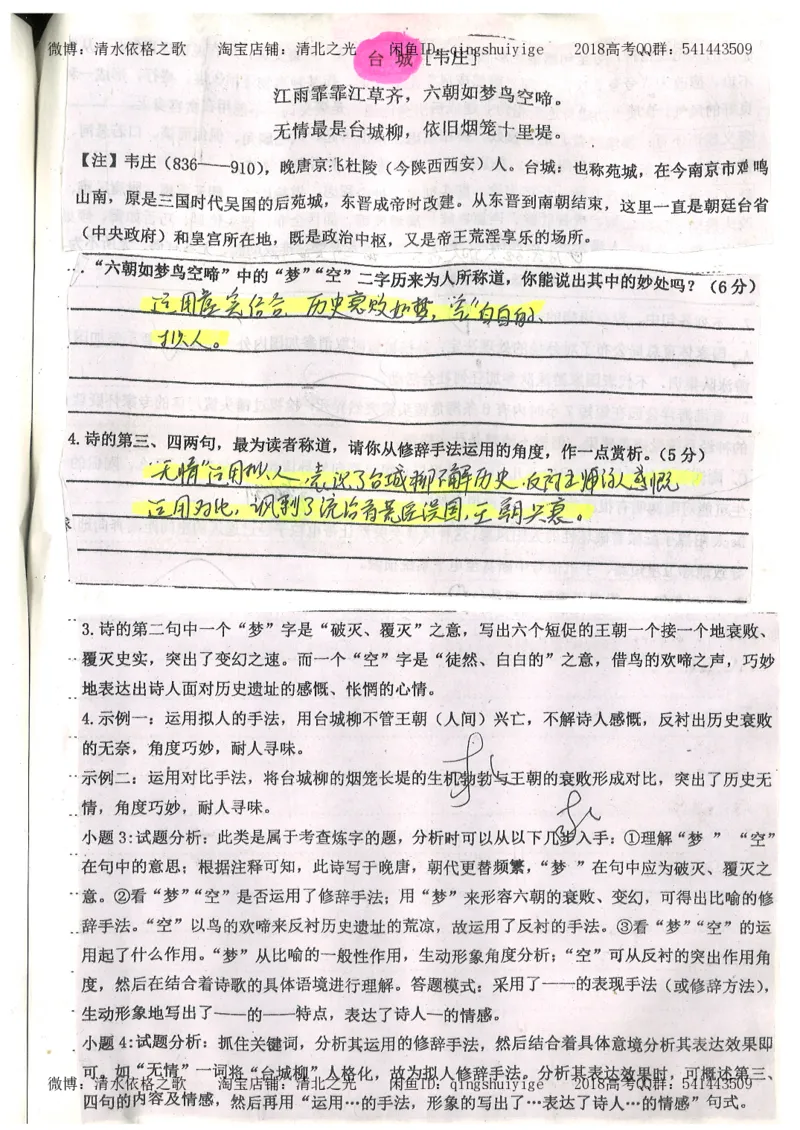 微博：清水依格之歌 淘宝店铺：清北之光 闲鱼ID：qingshuiyige 2018高考QQ群：541443509
台 城 [韦庄]
江雨霏霏江草齐，六朝如梦鸟空啼。
无情最是台城柳，依旧烟笼十里堤。
【注】韦庄（836——910），晚唐京兆杜陵（今陕西西安）人。台城：也称苑城，在今南京市鸡鸣
山南，原是三国时代吴国的后苑城，东晋成帝时改建。从东晋到南朝结束，这里一直是朝廷台省
（中央政府）和皇宫所在地，既是政治中枢，又是帝王荒淫享乐的场所。
．“六朝如梦鸟空啼”中的“梦”“空”二字历来为人所称道，你能说出其中的妙处吗？（6分）
运用虚实结合，历史衰败如梦，
拟人。
4.诗的第三、四两句，最为读者称道，请你从修辞手法运用的角度，作一点赏析。（5分）
“无情”运用拟人，台城柳不解历史，反衬出诗人感慨
运用对比，讽刺了统治者荒淫误国，王朝兴衰。
3.诗的第二句中一个“梦”字是“破灭、覆灭”之意，写出六个短促的王朝一个接一个地衰败、
覆灭史实，突出了变幻之速。而一个“空”字是“徒然、白白的”之意，借鸟的欢啼之声，巧妙
地表达出诗人面对历史遗址的感慨、怅惘的心情。
4.示例一：运用拟人的手法，用台城柳不管王朝（人间）兴亡，不解诗人感慨，反衬出历史衰败
的无奈，角度巧妙，耐人寻味。
示例二：运用对比手法，将台城柳的烟笼长堤的生机勃勃与王朝的衰败形成对比，突出了历史无
情，角度巧妙，耐人寻味。
小题3:试题分析：此类是属于考查炼字的题，分析时可以从以下几步入手：①理解“梦 ” “空”
在句中的意思；根据注释可知，此诗写于晚唐，朝代更替频繁，“梦 ”在句中应为破灭、覆灭之
意。②看“梦”“空”是否运用了修辞手法；用“梦”来形容六朝的衰败、变幻，可得出比喻的修
辞手法。“空”以鸟的欢啼来反衬历史遗址的荒凉，故运用了反衬的手法。③看“梦”“空”的运
用起了什么作用。“梦”从比喻的一般性作用，生动形象角度分析；“空”可从反衬的突出作用角
度，然后在结合着诗歌的具体语境进行理解。答题模式：采用了——的表现手法（或修辞方法），
生动形象地写出了——的——特点，表达了诗人—的情感。
小题4:试题分析：抓住关键词，分析其运用的修辞手法，然后结合着具体意境分析其表达效果即
可。如“无情”一词将“台城柳”人格化，故为拟人修辞手法。分析其表达效果时，可概述第三、
微博：清水依格之歌 淘宝店铺：清北之光 闲鱼ID：qingshuiyige 2018高考QQ群：541443509
四句的内容及情感，然后再用“运用…的手法，形象的写出了…表达了诗人…的情感”句式。